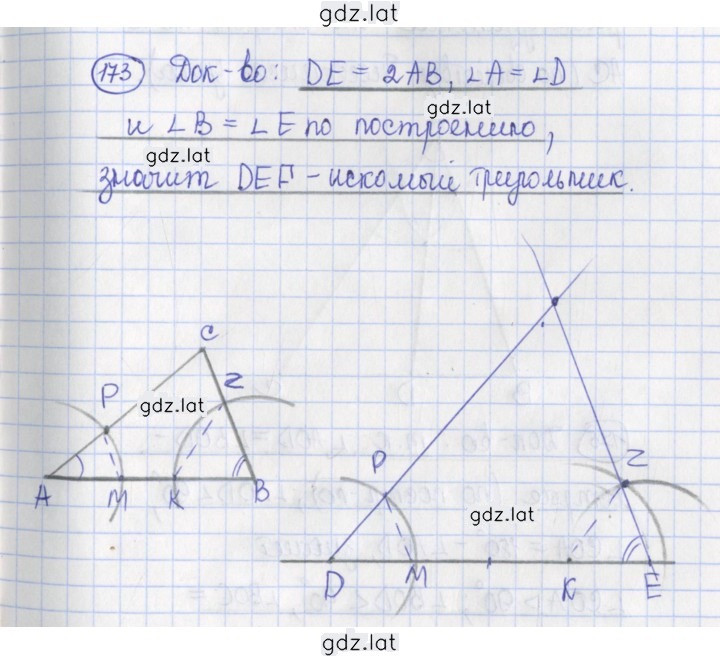 gdz.lat
173 Док-во: DE = 2AB, ∠A = ∠D
gdz.lat
и ∠B = ∠E по построению,
gdz.lat
значит DEF – искомый треугольник.
C
P
Z
gdz.lat
A M K B
P
Z
gdz.lat
D M K E
gdz.lat